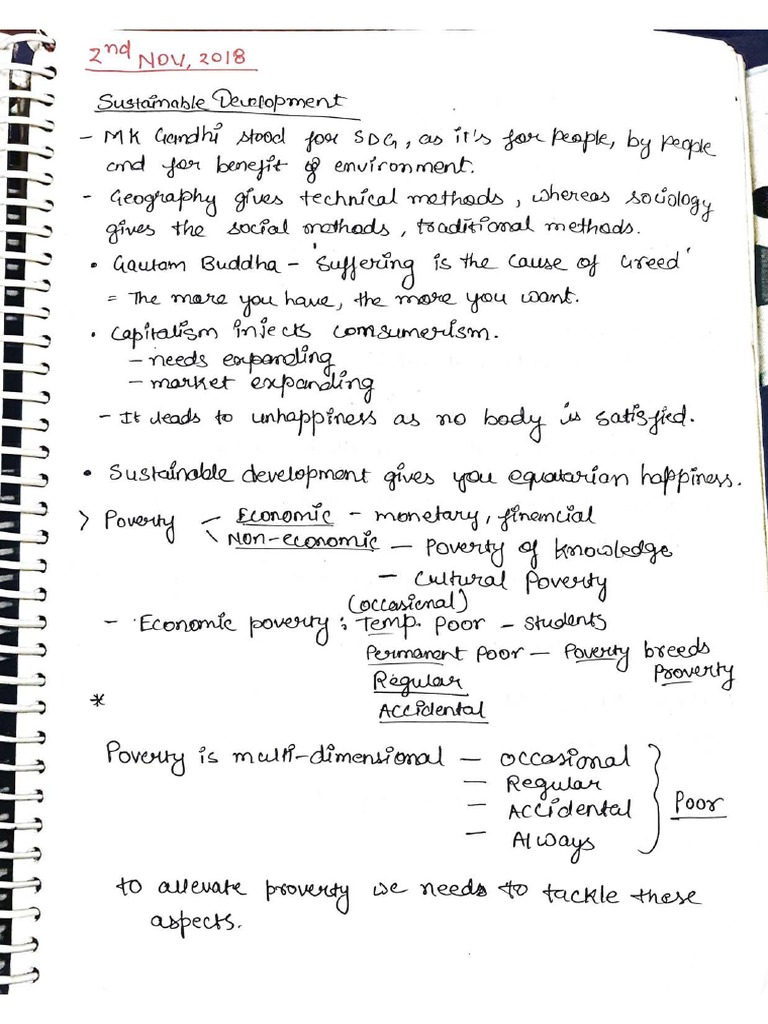 2nd NOV, 2018
Sustainable Development
- MK Gandhi stood for SDG, as it's for people, by people
and for benefit of environment.
- Geography gives technical methods, whereas sociology
gives the social methods, traditional methods.
• Gautam Buddha - 'Suffering is the cause of Greed'
= The more you have, the more you want.
• Capitalism injects comsumerism.
- needs expanding
- market expanding
- It leads to unhappiness as no body is satisfied.
• Sustainable development gives you equatarian happiness.
> Poverty - Economic - monetary, financial
\ Non-economic - Poverty of knowledge
- Cultural Poverty
(occasional)
- Economic poverty : Temp. poor - students
Permanent poor - Poverty breeds
Proverty
Regular
*
Accidental
Poverty is multi-dimensional - occasional
- Regular
- Accidental
- Always
Poor
to allevate proverty we needs to tackle these
aspects.